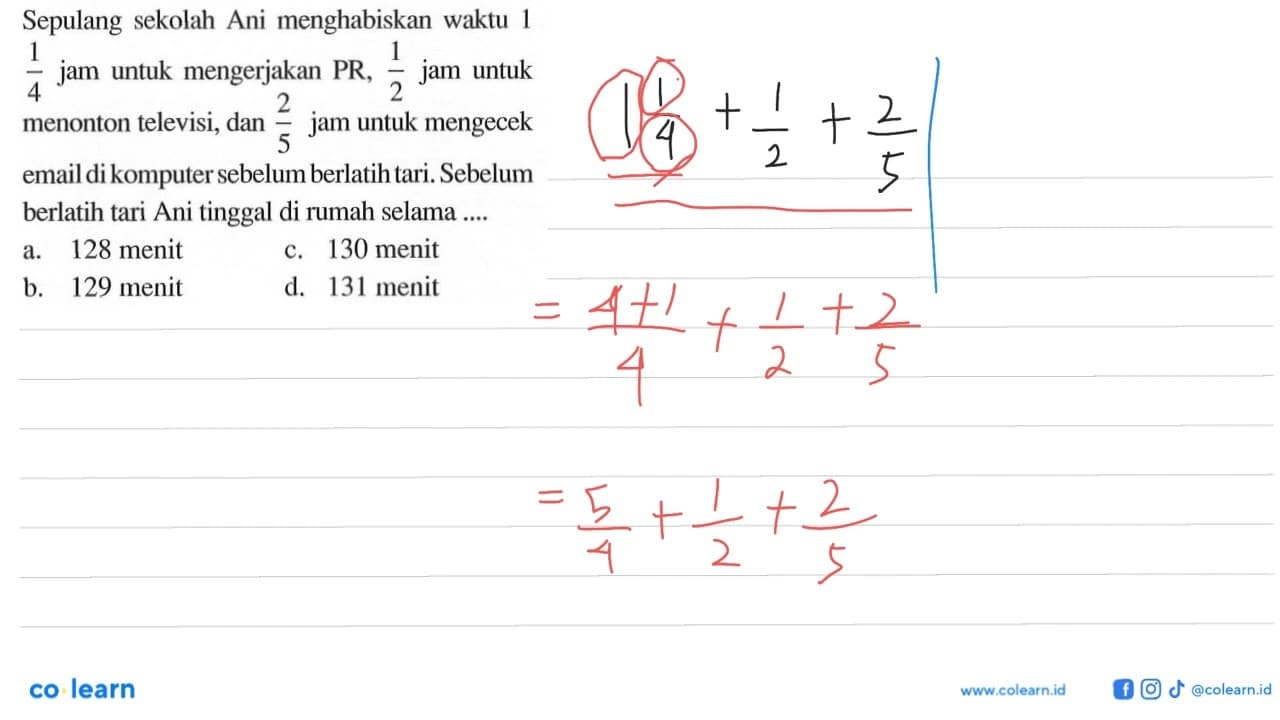 Sepulang sekolah Ani menghabiskan waktu 1
1/4 jam untuk mengerjakan PR, 1/2 jam untuk
menonton televisi, dan 2/5 jam untuk mengecek
email di komputer sebelum berlatih tari. Sebelum
berlatih tari Ani tinggal di rumah selama ....
a. 128 menit c. 130 menit
b. 129 menit d. 131 menit
1 1/4 + 1/2 + 2/5
= 4+1/4 + 1/2 + 2/5
= 5/4 + 1/2 + 2/5
co learn
www.colearn.id @colearn.id